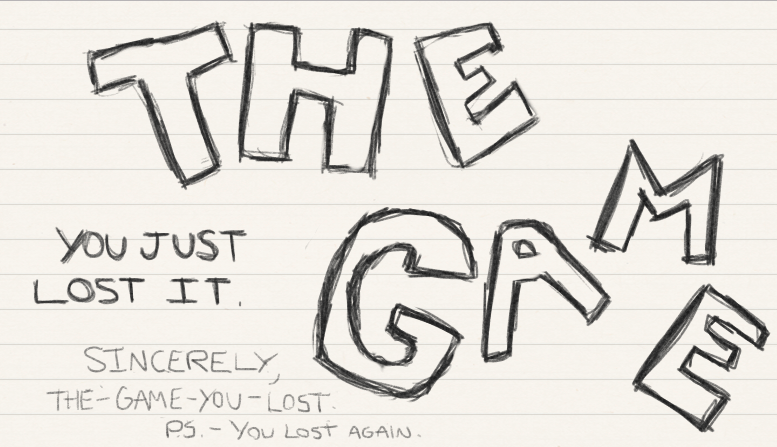 THE
GAME
YOU JUST
LOST IT.
SINCERELY,
THE-GAME-YOU-LOST.
P.S. - YOU LOST AGAIN.